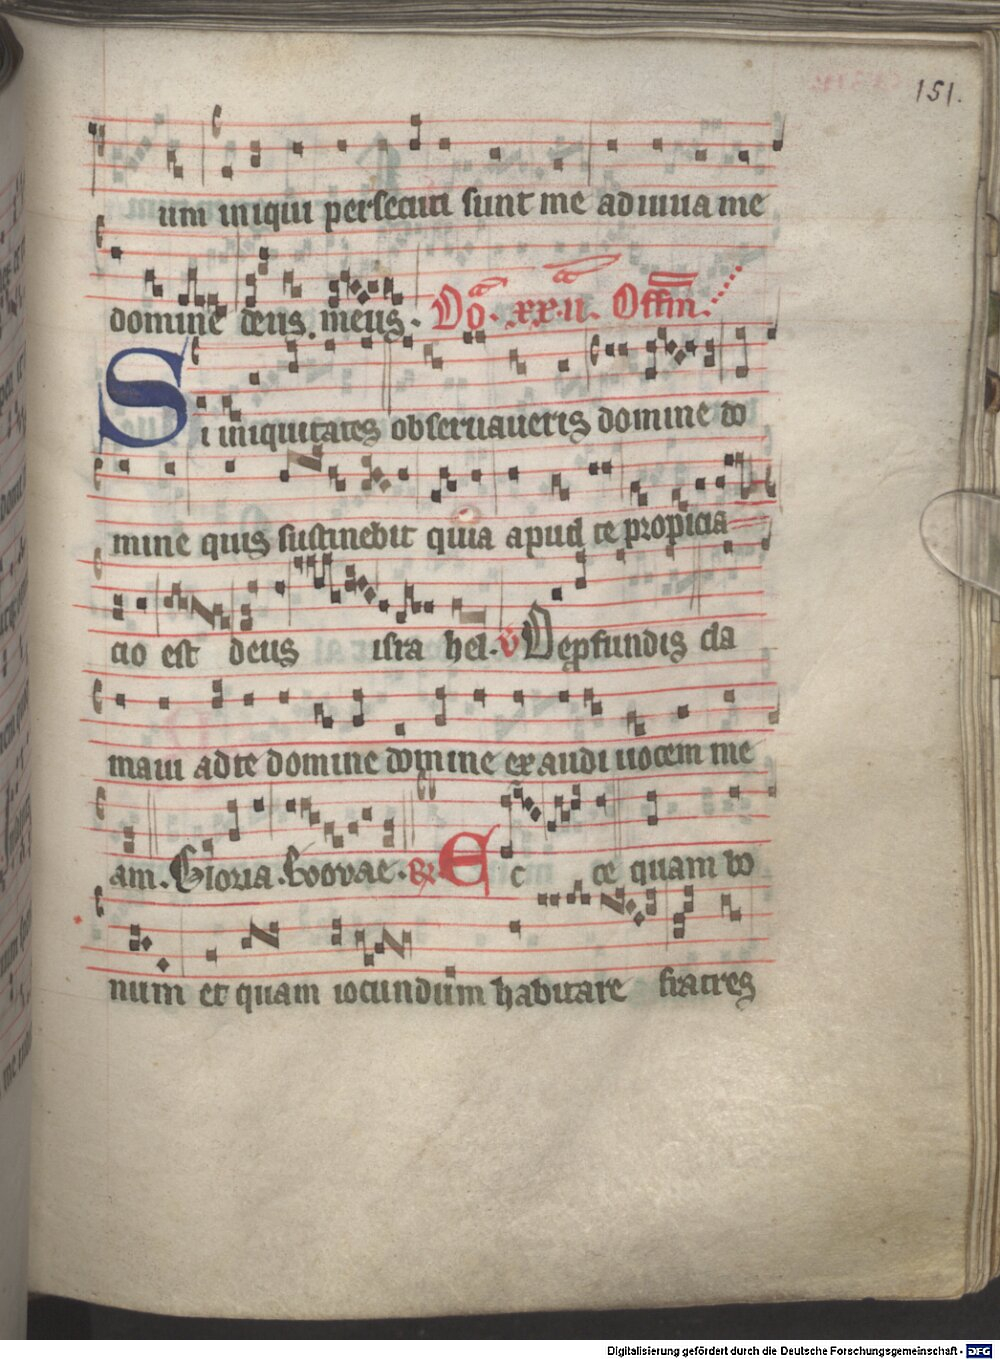 151.
um iniqui persecuti sunt me adiuua me
domine deus meus. Do. xx.ii. Offm.
Si iniquitates obseruaueris domine do
mine quis sustinebit quia apud te propicia
cio est deus isra hel. V Depfundis cla
maui ad te domine domine exaudi uocem me
am. Gloria. Evovae. Ecce quam bo
num et quam iocundum habitare fratres
Digitalisierung gefördert durch die Deutsche Forschungsgemeinschaft - DFG